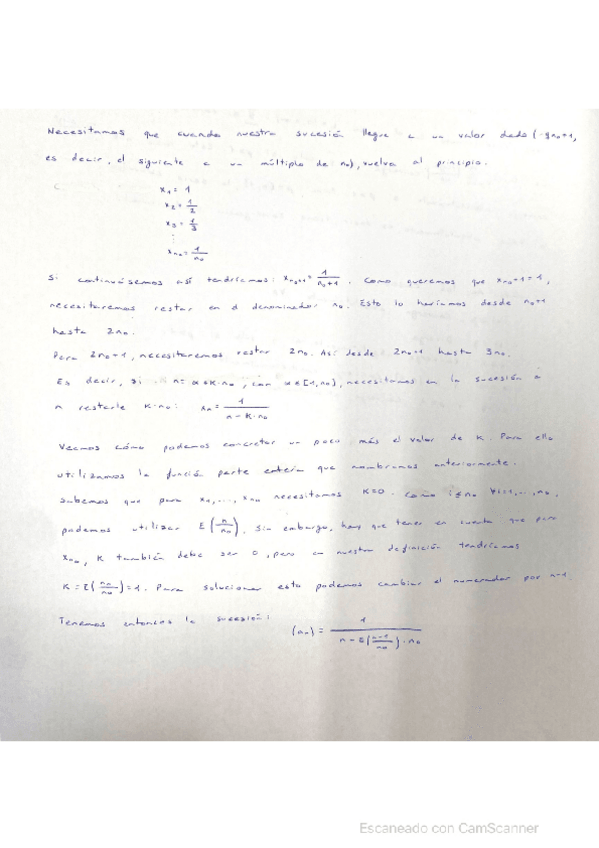 Necesitamos que cuando nuestra sucesión llegue a un valor dado (qn₀+1,
es decir, el siguiente a un múltiplo de n₀), vuelva al principio.
x₁ = 1
x₂ = 1/2
x₃ = 1/3
⋮
xn₀ = 1/n₀
Si continuásemos así tendríamos: xn₀+1 = 1/(n₀+1). Como queremos que xn₀+1 = 1,
necesitaremos restar en el denominador n₀. Esto lo haríamos desde n₀+1
hasta 2n₀.
Para 2n₀+1, necesitaremos restar 2n₀. Así desde 2n₀+1 hasta 3n₀.
Es decir, si n = α+k·n₀, con α∈[1,n₀), necesitamos en la sucesión a
n restarle k·n₀: xn = 1/(n-k·n₀)
Veamos cómo podemos concretar un poco más el valor de k. Para ello
utilizamos la función parte entera que nombramos anteriormente.
Sabemos que para x₁, ..., xn₀ necesitamos k=0. Como i≤n₀ ∀i=1,...,n₀,
podemos utilizar E(n/n₀). Sin embargo, hay que tener en cuenta que para
xn₀, k también debe ser 0, pero en nuestra definición tendríamos
k = E(n₀/n₀) = 1. Para solucionar esto podemos cambiar el numerador por n-1.
Tenemos entonces la sucesión: (an) = 1/(n-E((n-1)/n₀)·n₀)
Escaneado con CamScanner